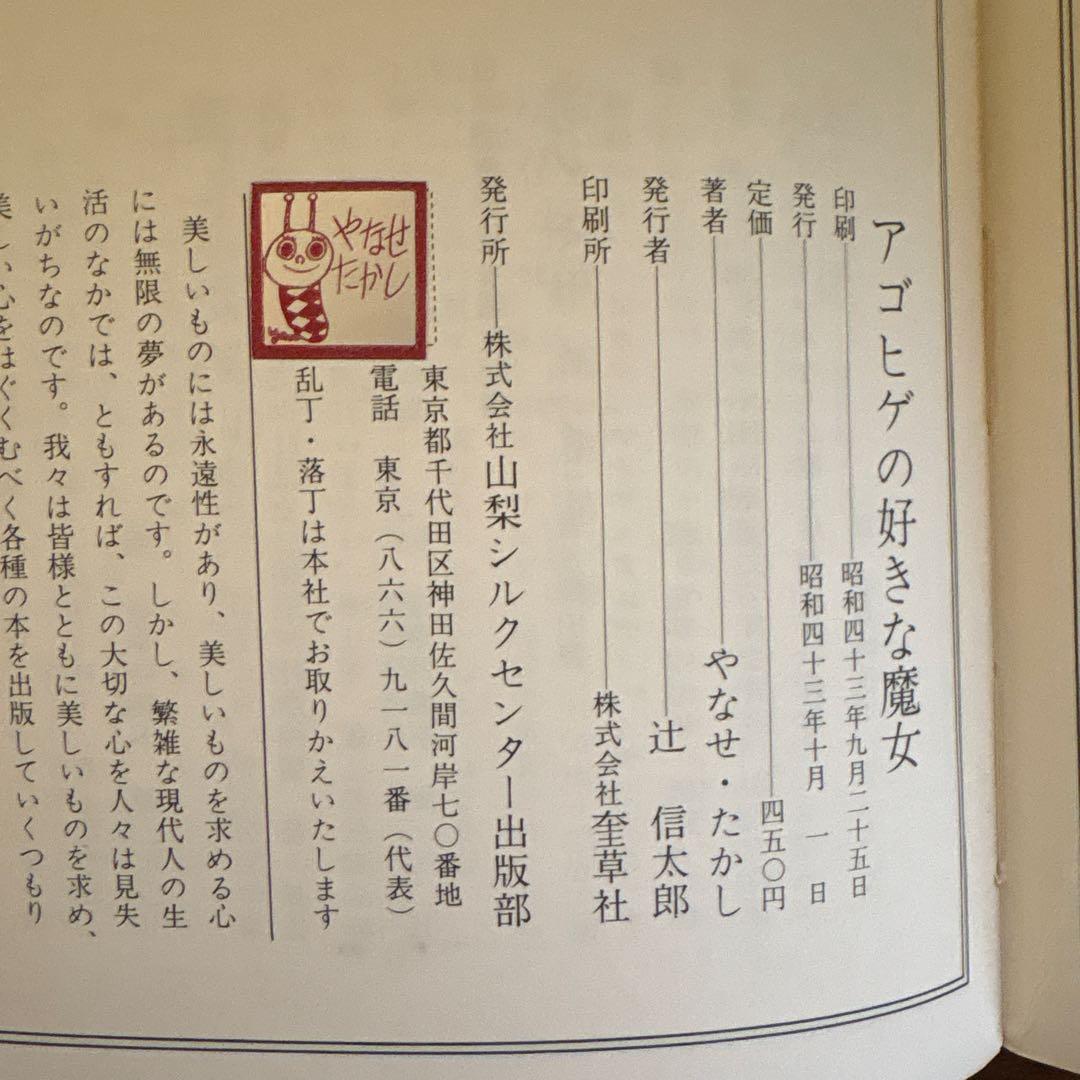 アゴヒゲの好きな魔女
印刷 昭和四十三年九月二十五日
発行 昭和四十三年十月一日
定価 四五〇円
著者 やなせ・たかし
発行者 辻 信太郎
印刷所 株式会社奎草社
発行所 株式会社山梨シルクセンター出版部
東京都千代田区神田佐久間河岸七〇番地
電話 東京(八六六)九一八一番(代表)
乱丁・落丁は本社でお取りかえいたします
やなせ
たかし
美しいものには永遠性があり、美しいものを求める心
には無限の夢があるのです。しかし、繁雑な現代人の生
活のなかでは、ともすれば、この大切な心を人々は見失
いがちなのです。我々は皆様とともに美しいものを求め、
美しい心をはぐくむべく各種の本を出版していくつもり